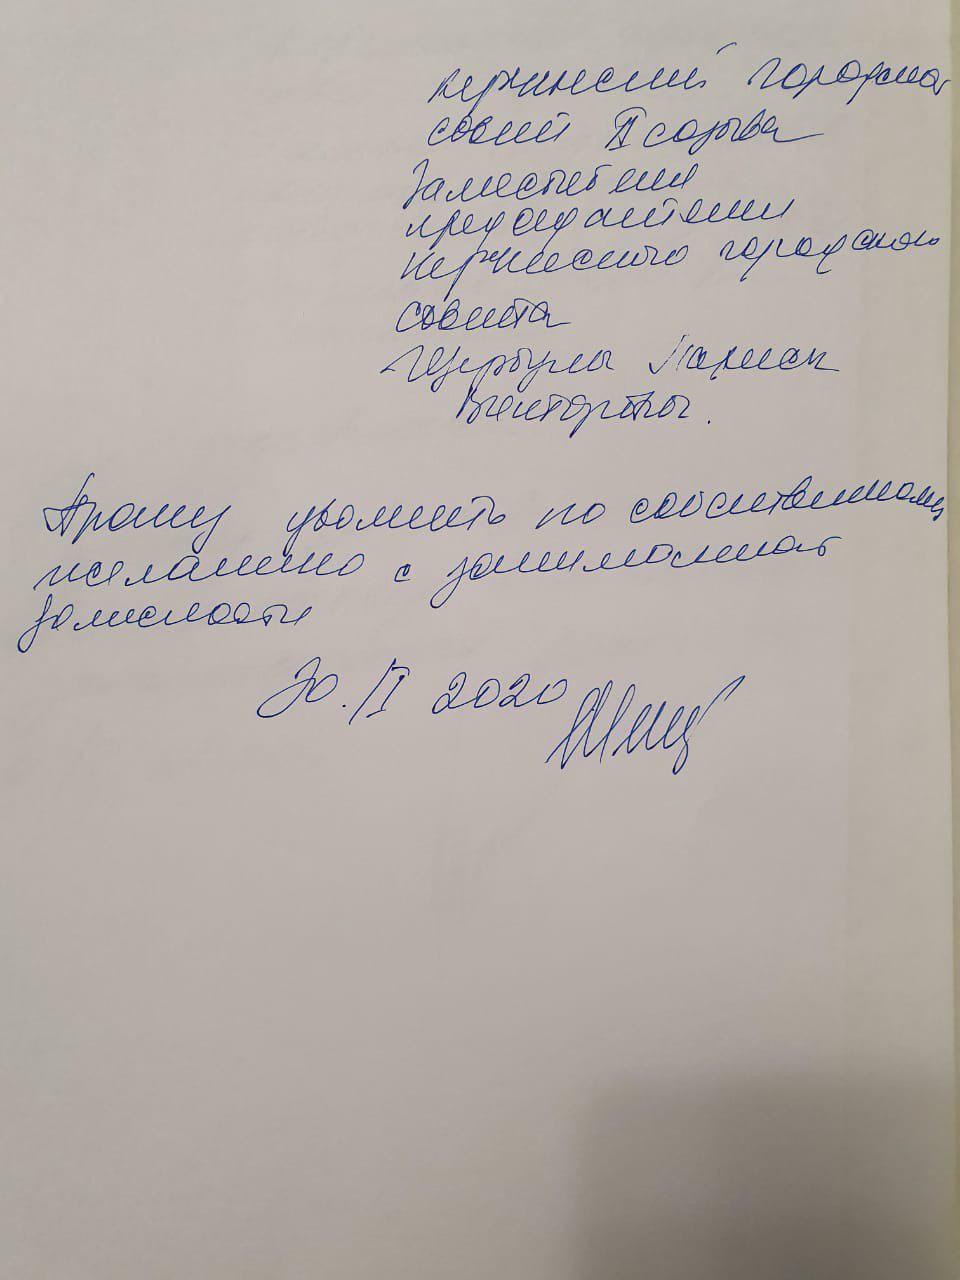 Керченский городской
совет II созыва
Заместителя
председателя
Керченского городского
совета
Щербулы Ларисы
Викторовны.
Прошу уволить по собственному
желанию с занимаемой
должности
30.IX 2020